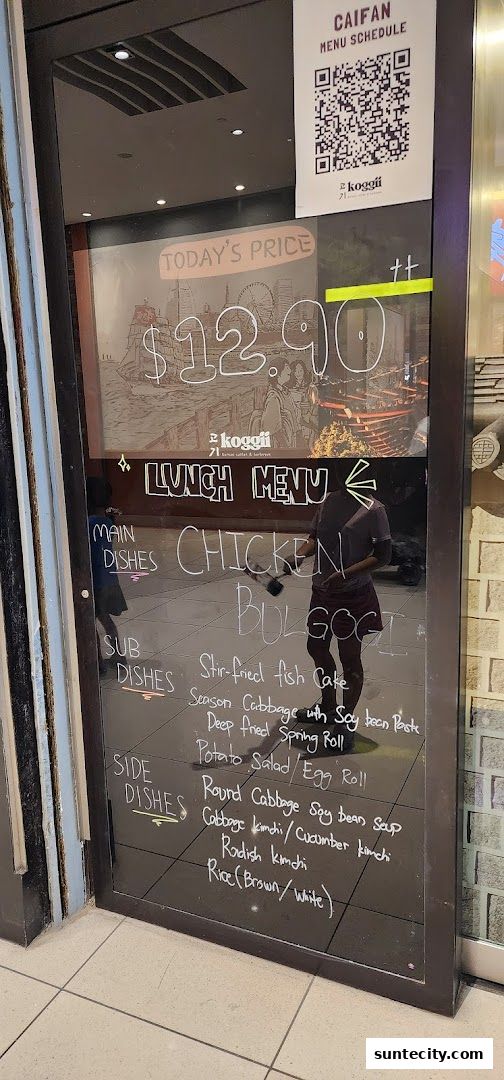 CAIFAN
MENU SCHEDULE
고기 koggii
TODAY'S PRICE
$12.90 ++
고기 koggii
LUNCH MENU
MAIN DISHES
CHICKEN
BULGOGI
SUB DISHES
Stir-fried fish Cake
Season Cabbage with Soy bean Paste
Deep fried Spring Roll
Potato Salad / Egg Roll
SIDE DISHES
Round Cabbage Soy bean Soup
Cabbage kimchi / Cucumber kimchi
Radish kimchi
Rice (Brown / White)
suntecity.com